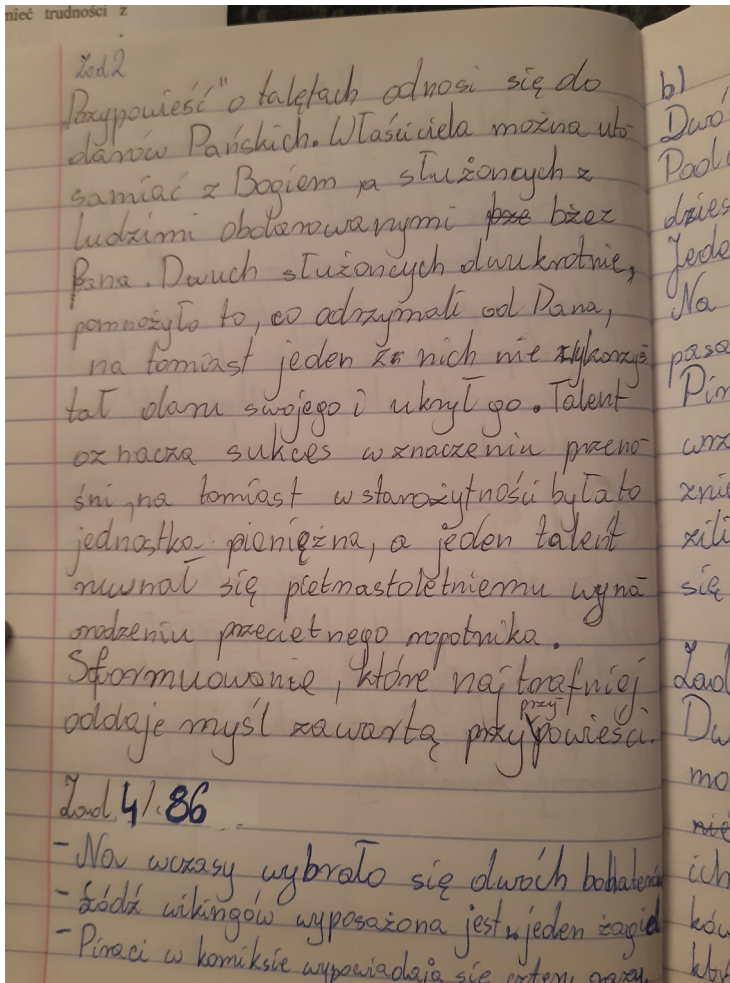 mieć trudności z
Zad 2
Przypowieść" o talętach odnosi się do
darów Pańskich. Właściciela można uto-
samiać z Bogiem, a służoncych z
ludzimi obdarowanymi bżez
Pana. Dwuch służoncych dwukrotnie,
pomnożyło to, co odrzymali od Pana,
na tomiast jeden z nich nie wykorzys
tał daru swojego i ukrył go. Talent
oznacza sukces w znaczeniu przeno-
śni, na tomiast w starożytności była to
jednostka pieniężna, a jeden talent
ruwnał się pietnastoletniemu wyna-
grodzeniu przeciętnego ropotnika.
Sformuowanie, które naj trafniej
oddaje myśl zawartą przypowieści.
Zad. 4/. 86
- Na wczasy wybrało się dwóch
- Łódź wikingów wyposażona jest w jeden żagiel
- Piraci w komiksie wypowiadają się cztery razy.
b)
Dwó
Podc
dzies
Jede
Na
pasa
Pir
wrz
znie
zili
się
Zad
Dw
mo
nie
ich
ków